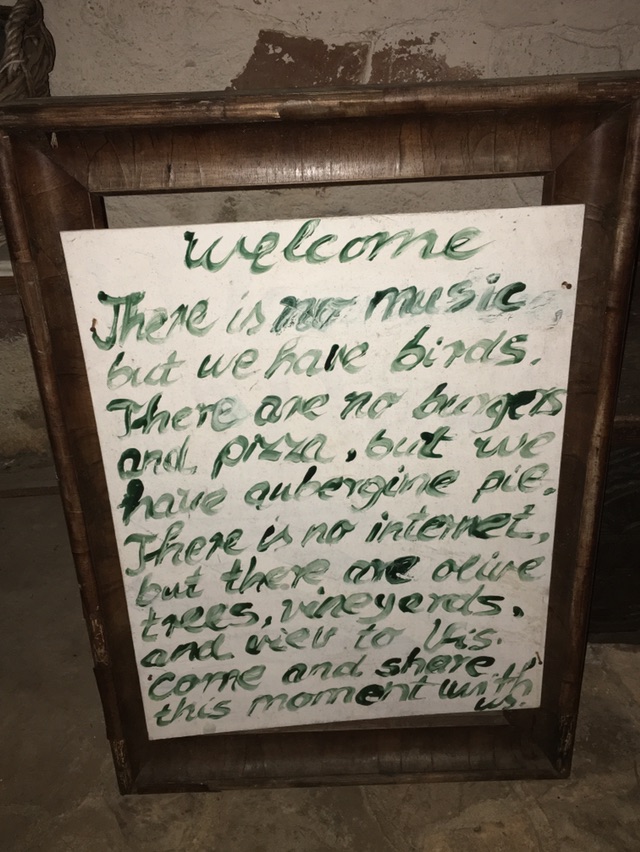 welcome
There is no music
but we have birds.
There are no burgers
and pizza, but we
have aubergine pie.
There is no internet,
but there are olive
trees, vineyards,
and view to Vis.
Come and share
this moment with
us.